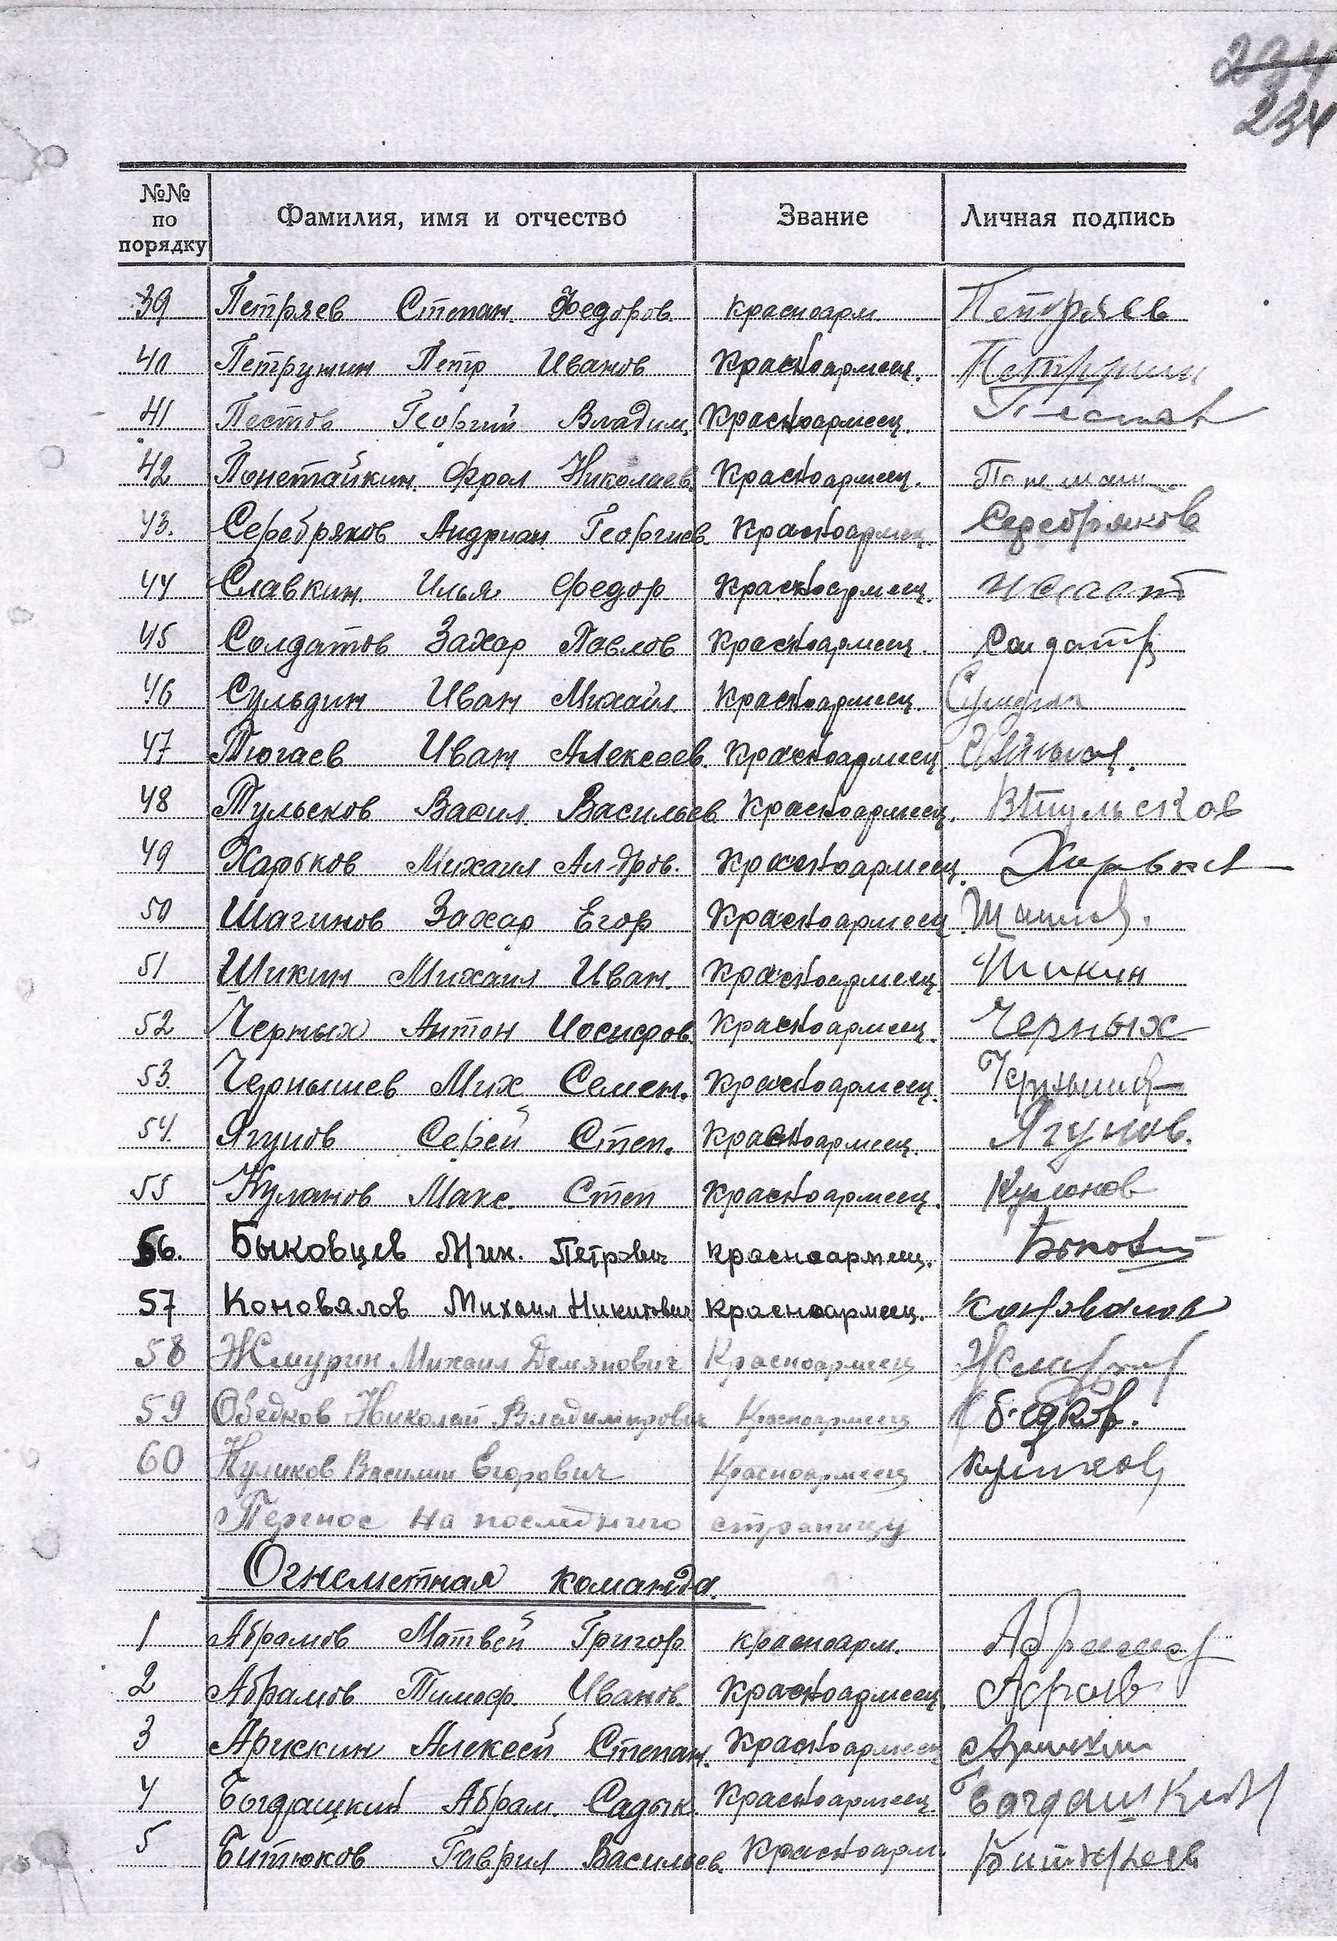 234
234
№№ по порядку Фамилия, имя и отчество Звание Личная подпись
39 Петряев Степан Федоров. красноарм. Петряев
40 Петрунин Петр Иванов Красноармеец.
41 Пестов Георгий Владим. Красноармеец. Пестов
42 Понетайкин Фрол Николаев. Красноармеец.
43. Серебряков Андриан Георгиев. Красноармеец. Серебряков
44 Славкин Илья Федор Красноармеец.
45 Солдатов Захар Павлов Красноармеец.
46 Сульдин Иван Михаил Красноармеец.
47 Тюгаев Иван Алексеев. Красноармеец.
48 Тульсков Васил. Васильев Красноармеец. ВТульсков
49 Харьков Михаил Ал-дров. Красноармеец. Харьков
50 Шагинов Захар Егор Красноармеец
51 Шикин Михаил Иван. Красноармеец Шикин
52 Черных Антон Иосифов. Красноармеец. Черных
53. Чернышев Мих Семен. Красноармеец.
54. Ягунов Сергей Степ. Красноармеец. Ягунов.
55 Куланов Макс. Степ Красноармеец. Куланов
56. Быковцев Мих. Петрович красноармеец.
57 Коновалов Михаил Никитович красноармеец. Коновалов
58 Жмурин Михаил Демянович Красноармеец
59 Обедков Николай Владимирович Красноармеец Обедков.
60 Куликов Василий Егорович Красноармеец Куликов
Перенос на последнию страницу
Огнеметная команда.
1 Абрамов Матвей Григор красноарм.
2 Абрамов Тимоф. Иванов Красноармеец.
3 Арискин Алексей Степан. Красноармеец Арискин
4 Богдашкин Абрам. Садык. Красноармеец. Богдашкин
5 Битюков Гаврил Васильев. Красноарм.